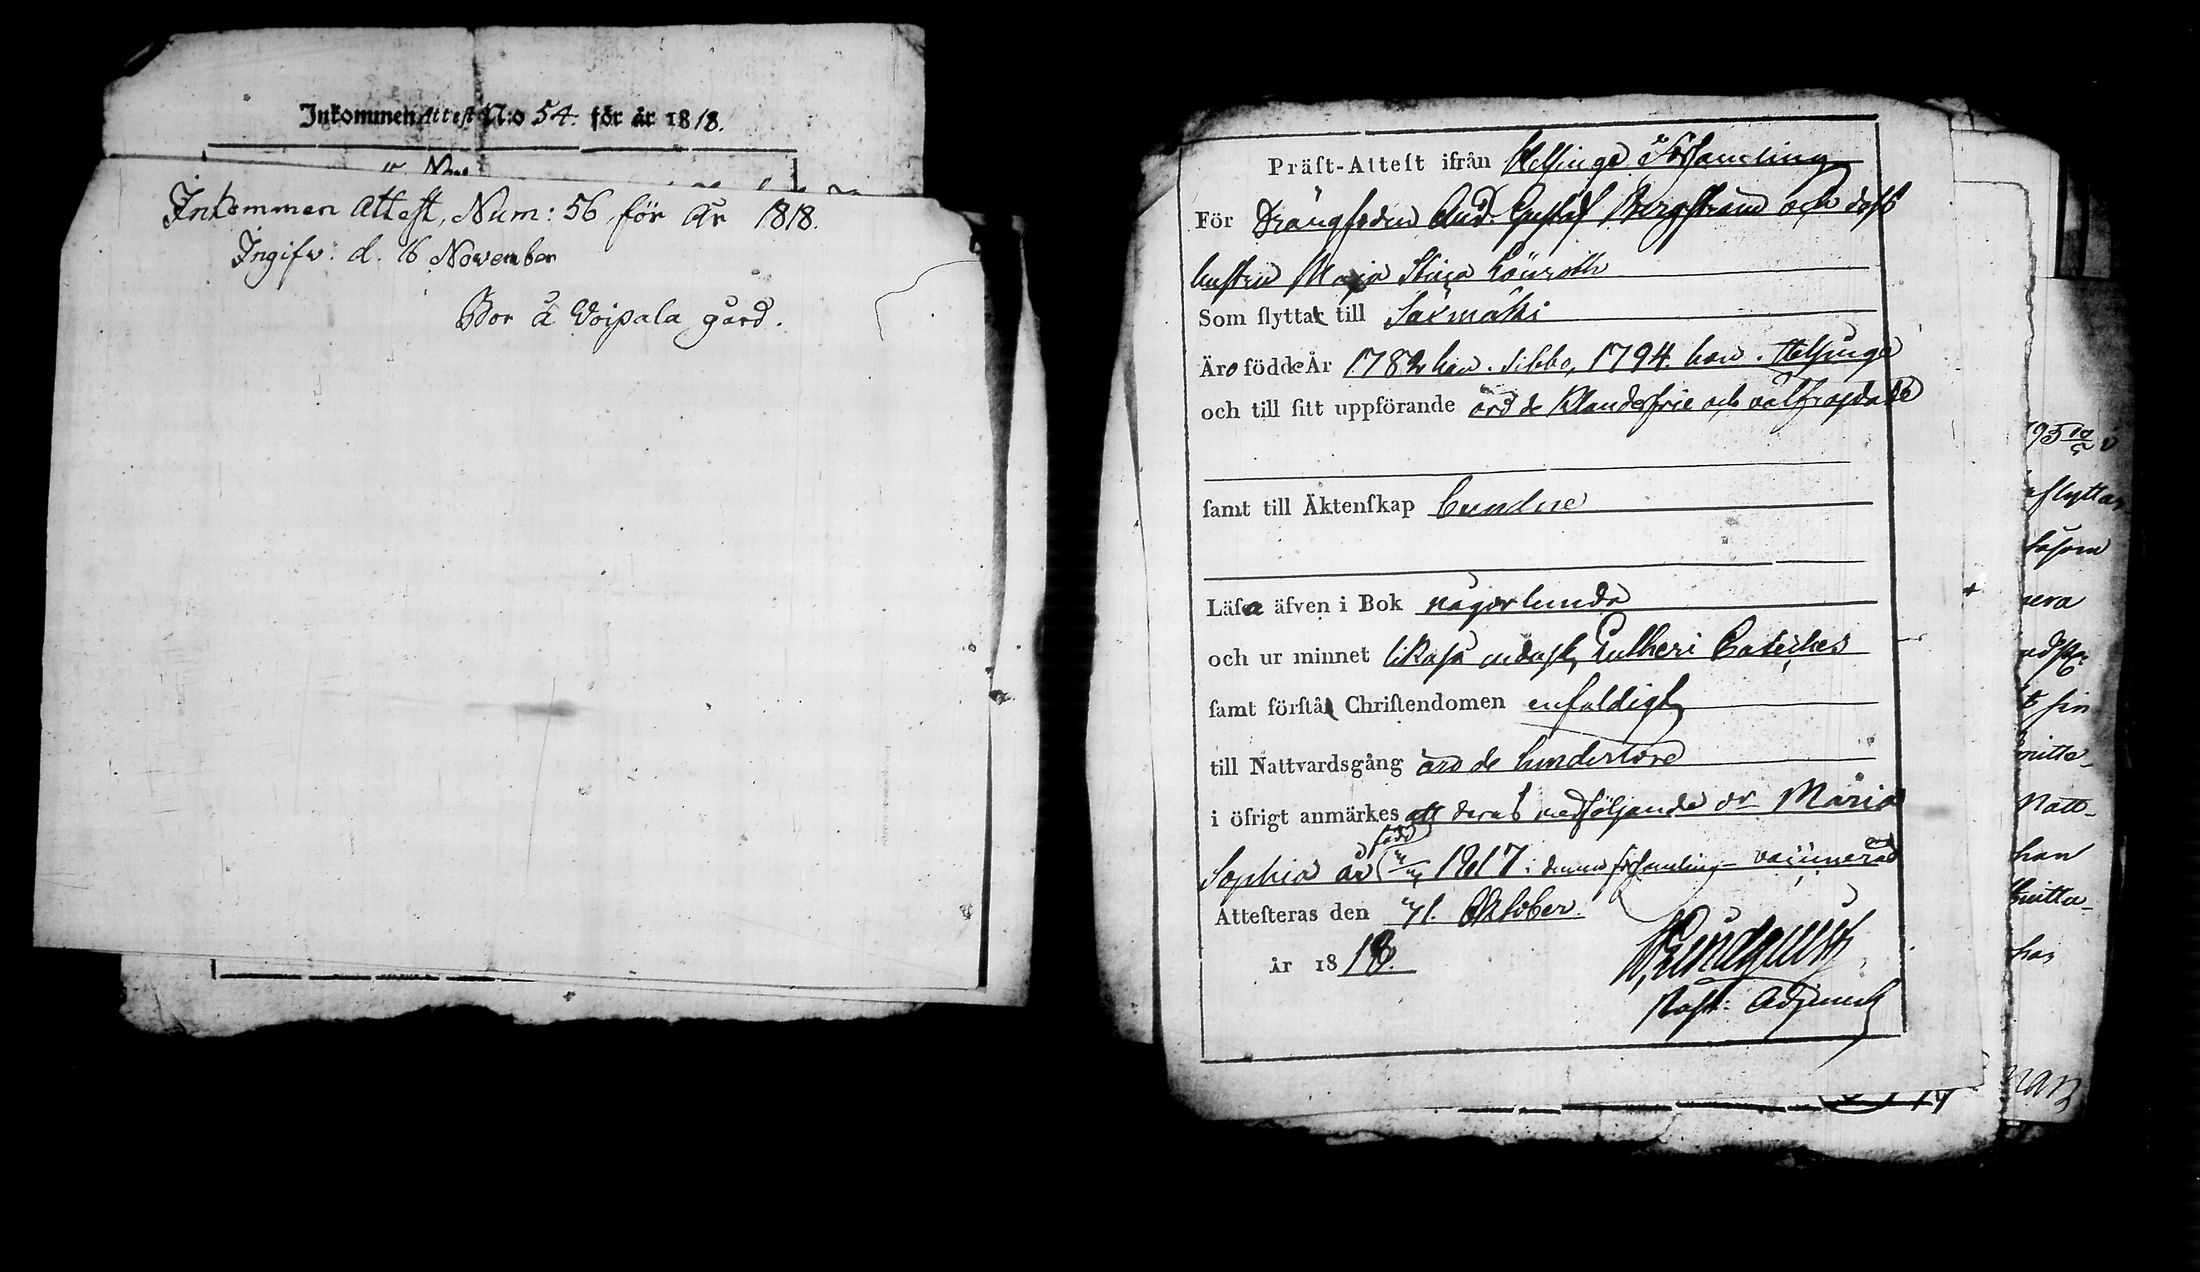 Inkommen Attest N:o 54. för år 1818.
Inkommen Attest, Num: 56, för År 1818.
Ingifv: d. 16 November
Bor å Woipala gård.
Präst-Attest ifrån Helsinge Församling
För Drängkarlen And. Gustaf Bergström och dess
hustru Maja Stina Lönroth
Som flyttar till Säxmäki
Äro födde År 1782 han. Sibbo, 1794. hon. Helsinge
och till sitt uppförande äro de klanderfrie och välfrejdade
samt till Äktenskap bundne
Läsa äfven i Bok någorlunda
och ur minnet likaså endast, Lutheri Cateches
samt förstå Christendomen enfaldigt
till Nattvardsgång äro de hinderlöse
i öfrigt anmärkes att deras medföljande dr Maria
Sophia är född 1817 i denna församling – vaccinerad
Attesteras den 21. Oktober.
år 1818.
Lindqvist
Past: Adjunct
flyttar
såsom
sin
Natt-
han